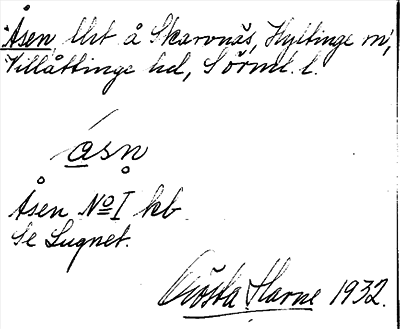 Åsen, lht å Skarvnäs, Hyltinge sn,
Villåttinge hd, Sörml. l.
åsn̥
Åsen No I kb
Se Lugnet.
Gösta Harne 1932.